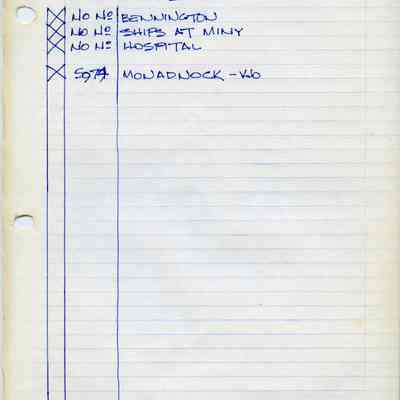 NO Nº BENNINGTON
NO Nº SHIPS AT MINY
NO Nº HOSPITAL
MONADNOCK -